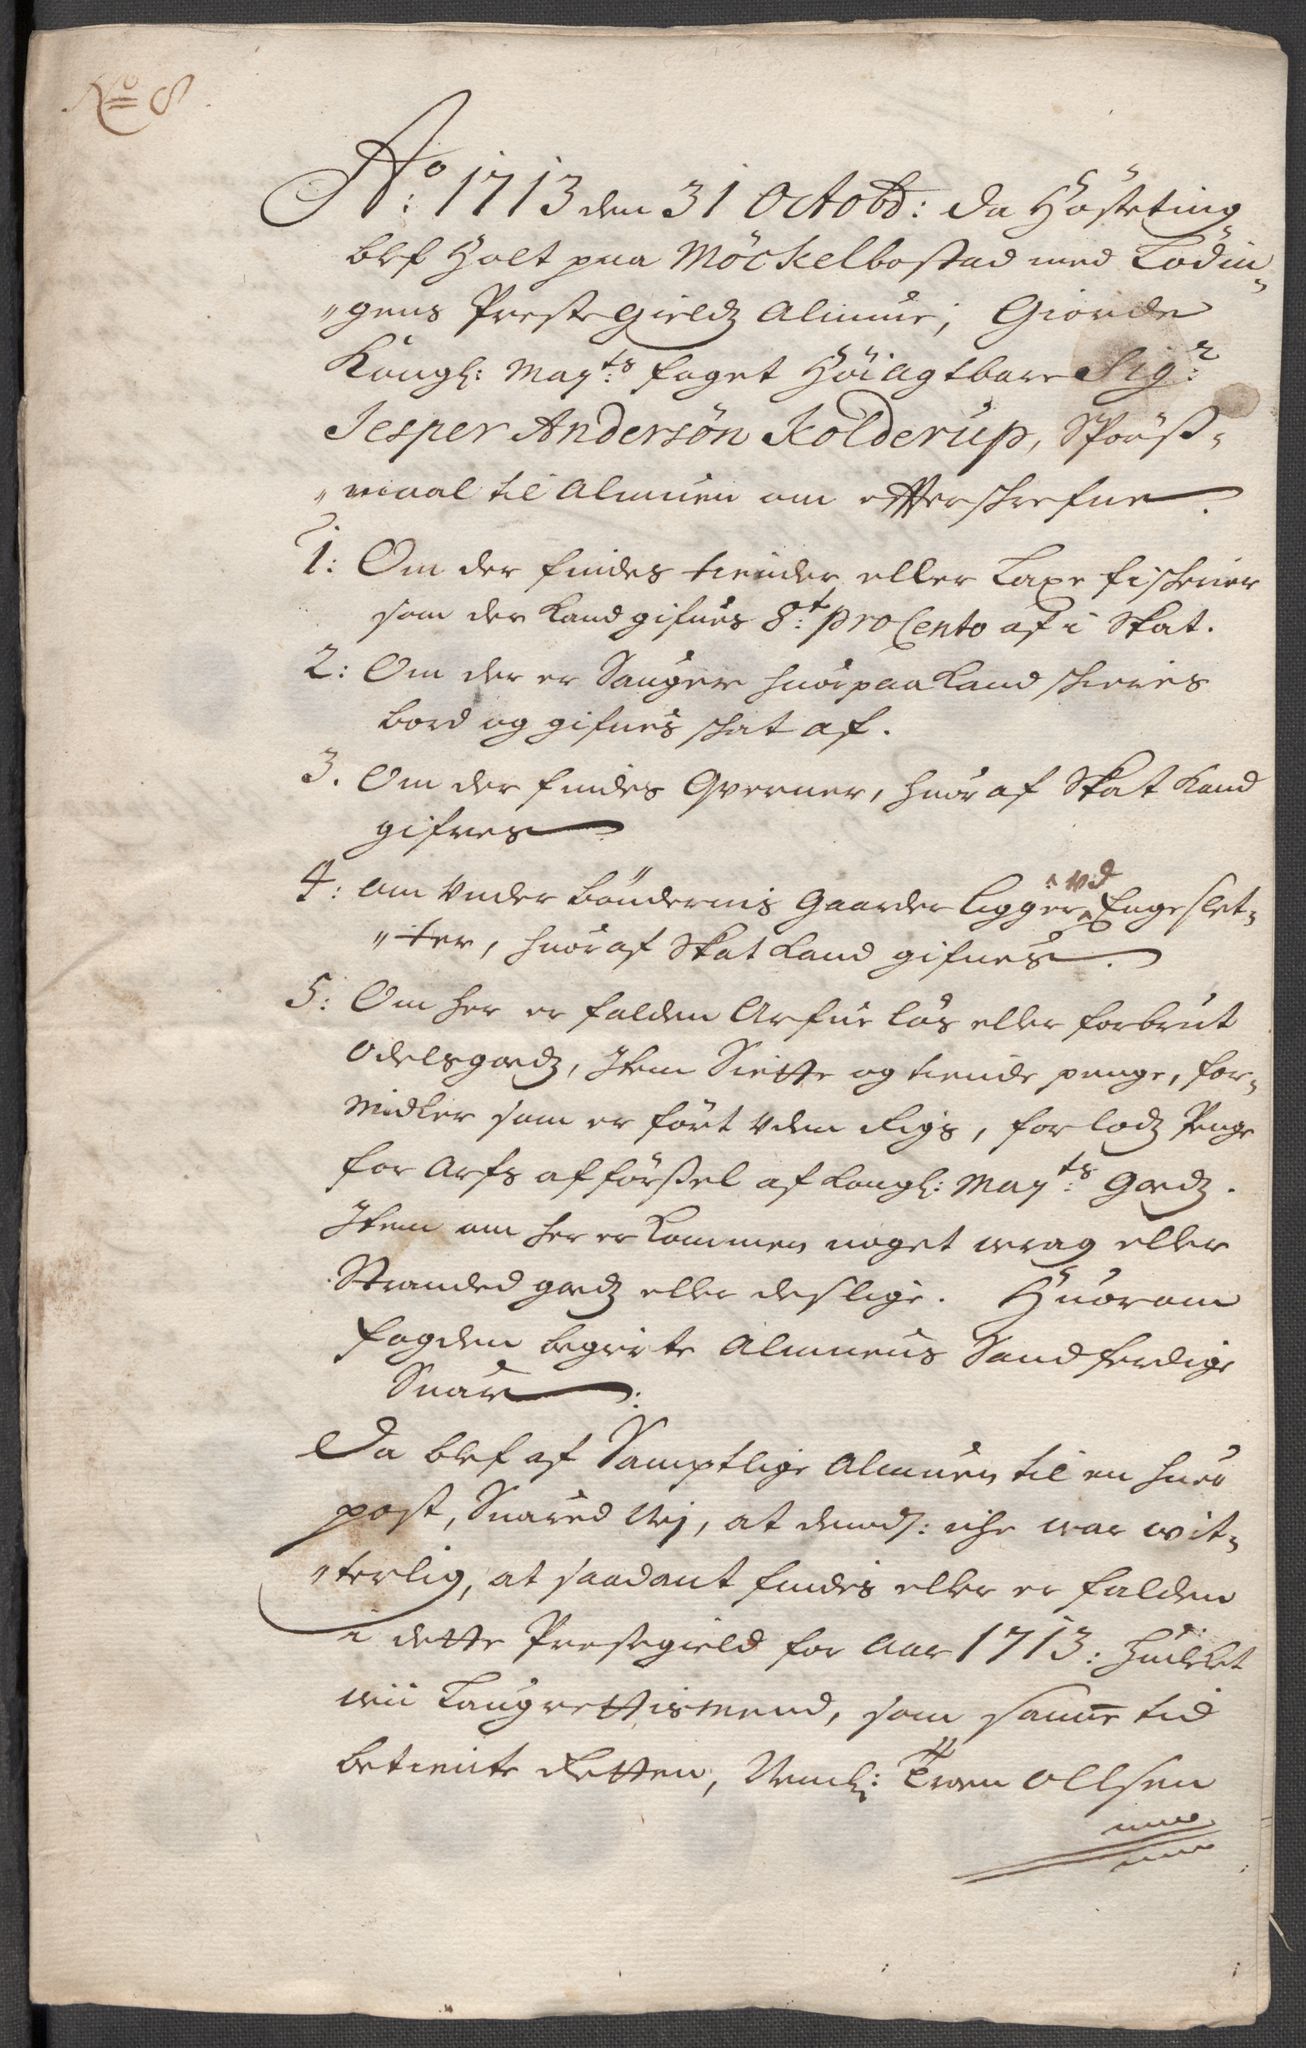 No 8
Ao: 1713 den 31 Octobr: da Høsteting
blef Holt paa Möckelbostad med Lödin-
"gens Preste Gieldz Almue, Giorde
Kongl: Mayts: foget Höiagtbare Sigr:
Jesper Andersøn Kolderup, Spörß-
"maal til Almuen om efterschrefne.
1: Om der findes tiender eller Laxe fischerier
som der kand gifues 8t: pro Cento af i Skat.
2: Om der er Sauger huorpaa kand schieris
bord og gifues schat af.
3. Om der findes Qverner, huoraf Skat kand
gifves
4: Om Vnder böndernis Gaarder ligger vid Enge slet-
"ter, huoraf Skat kand gifues.
5: Om her er falden Arfue løs eller forbrut
Odelsgodz, Item Siette og tiende penge, for-
midler som er fört vden Rigs, forlodz Penge
for Arfs afförßel af Kongl: Mayts: Godz.
Item om her er kommen noget wrag eller
Stranded godz eller deslige. Huorom
fogden begierte Almuens Sandferdige
Suar:
Da blef af Samptlige Almuen til en huer
post, Suared Nej, at dennem: iche war wit-
"terlig, at saadant findes eller er falden
i dette Prestegield for Aar 1713: Huilket
wii Laugrettismend, som samme tid
betiente Retten, Neml: Ewen Ollsen